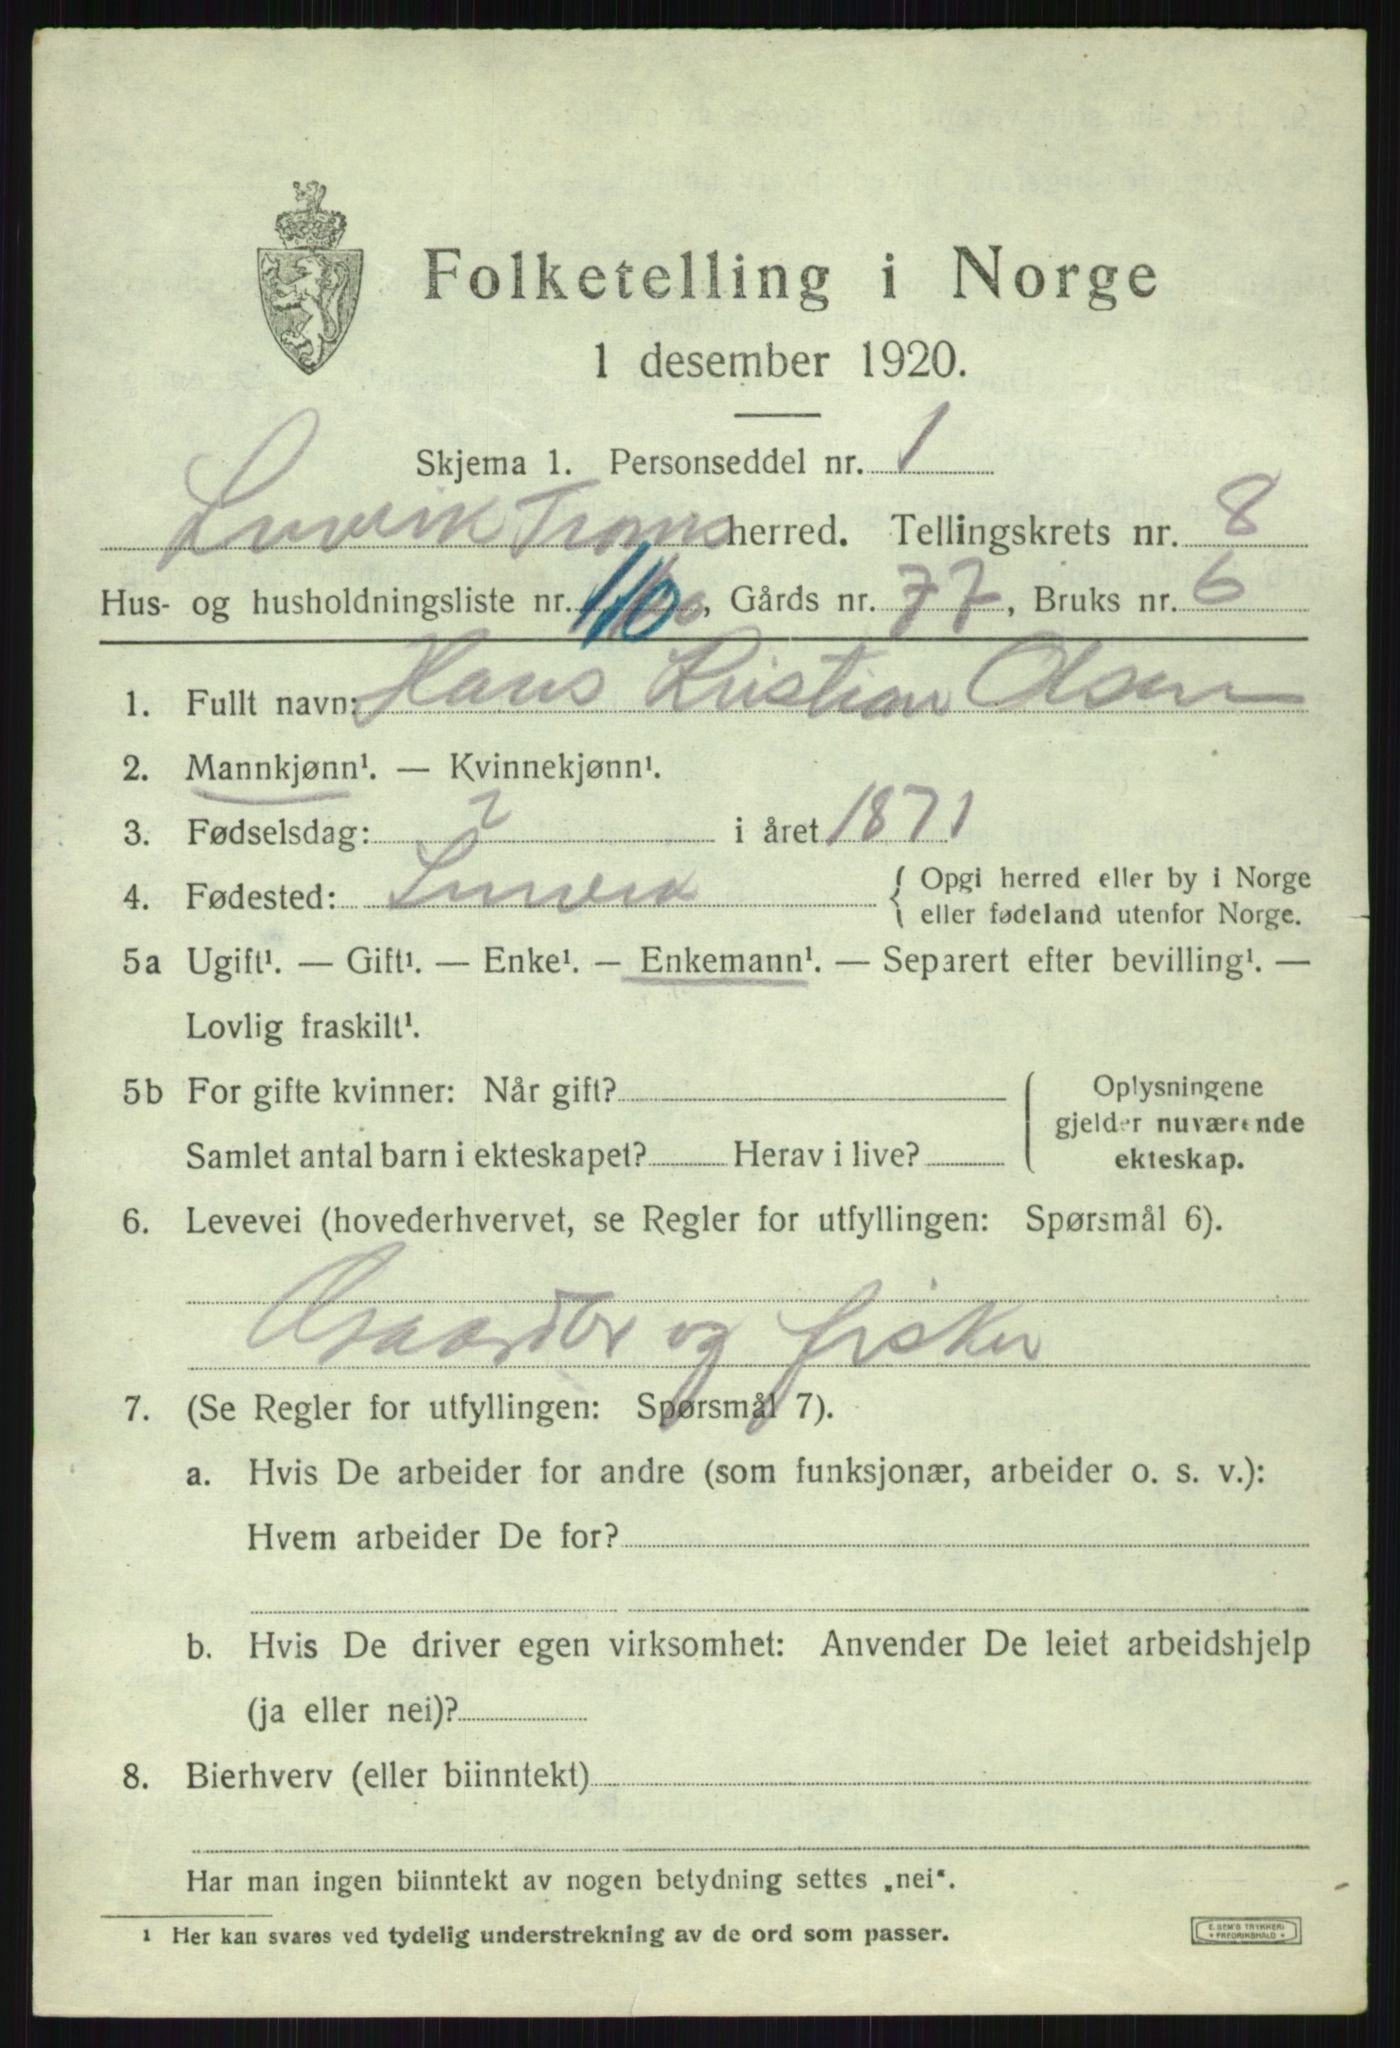 Folketelling i Norge
1 desember 1920.
Skjema 1. Personseddel nr. 1
herred. Tellingskrets nr. 8
Hus- og husholdningsliste nr. 110, Gårds nr. 77, Bruks nr. 6
1. Fullt navn: Hans Kristian Olsen
2. Mannkjønn¹. — Kvinnekjønn¹.
3. Fødselsdag: 2 i året 1871
4. Fødested: { Opgi herred eller by i Norge
eller fødeland utenfor Norge.
5a Ugift¹. — Gift¹. — Enke¹. — Enkemann¹. — Separert efter bevilling¹. —
Lovlig fraskilt¹.
5b For gifte kvinner: Når gift? { Oplysningene
gjelder nuværende
Samlet antal barn i ekteskapet? Herav i live? ekteskap.
6. Levevei (hovederhvervet, se Regler for utfyllingen: Spørsmål 6).
og fisker
7. (Se Regler for utfyllingen: Spørsmål 7).
a. Hvis De arbeider for andre (som funksjonær, arbeider o. s. v.):
Hvem arbeider De for?
b. Hvis De driver egen virksomhet: Anvender De leiet arbeidshjelp
(ja eller nei)?
8. Bierhverv (eller biinntekt)
Har man ingen biinntekt av nogen betydning settes „nei“.
1 Her kan svares ved tydelig understrekning av de ord som passer.
E. SEM'S TRYKKERI
* FREDRIKSHALD *